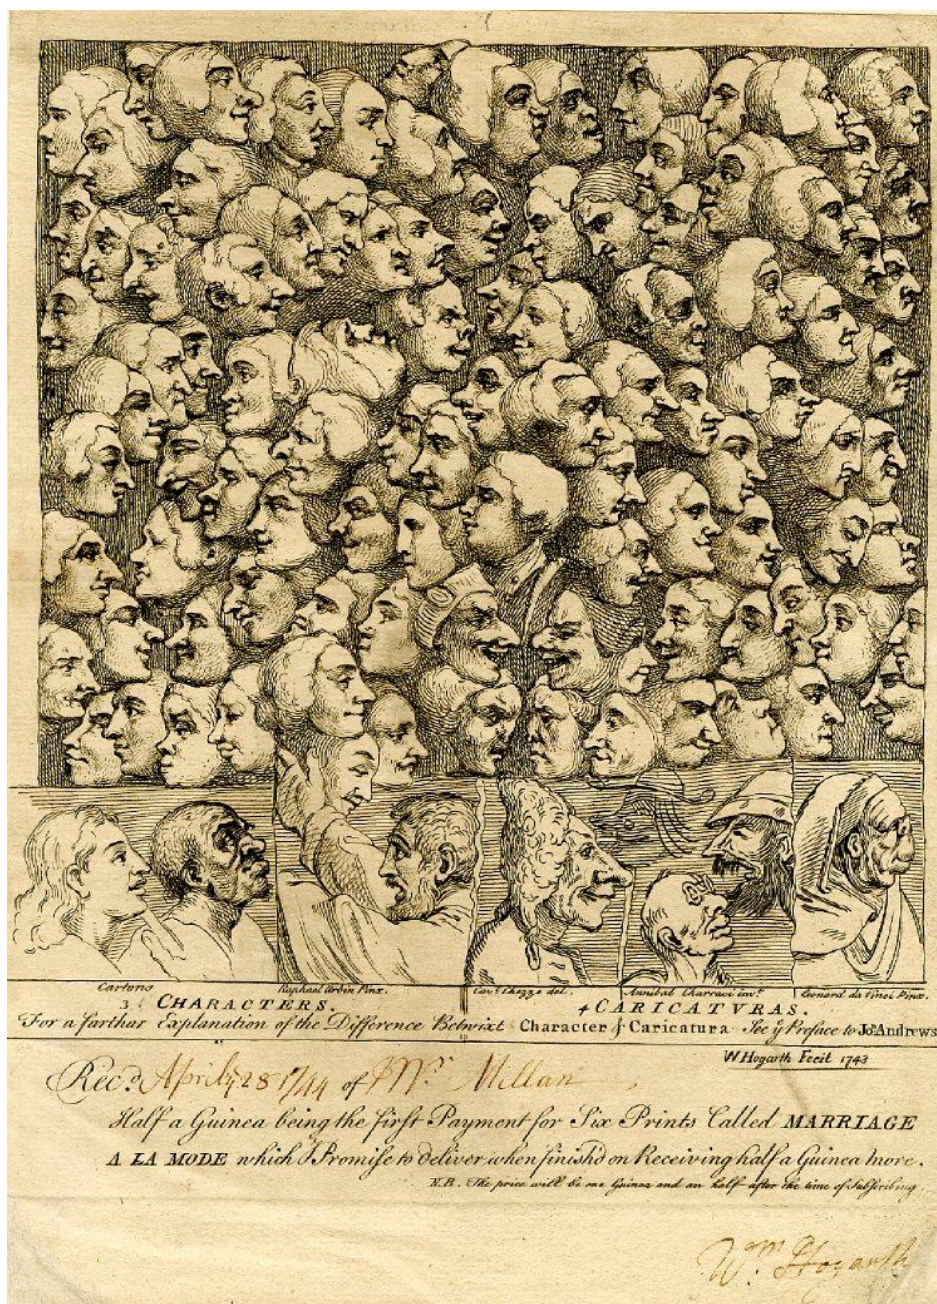 Cartons
Raphael Urbin Pinx.
Cavr. Chezze del.
Annibal Charraci invt.
Leonard da Vinci Pinx.
3 CHARACTERS.
4 CARICATVRAS.
For a farthar Explanation of the Difference Betwixt Character & Caricatura See ye Preface to Jos. Andrews
W Hogarth Fecit 1743
Recd. April 28 1744 of Mr. Millan
Half a Guinea being the first Payment for Six Prints Called MARRIAGE
A LA MODE which I Promise to deliver when finish'd on Receiving half a Guinea more.
N.B. The price will be one Guinea and an half after the time of Subscribing.
Wm. Hogarth